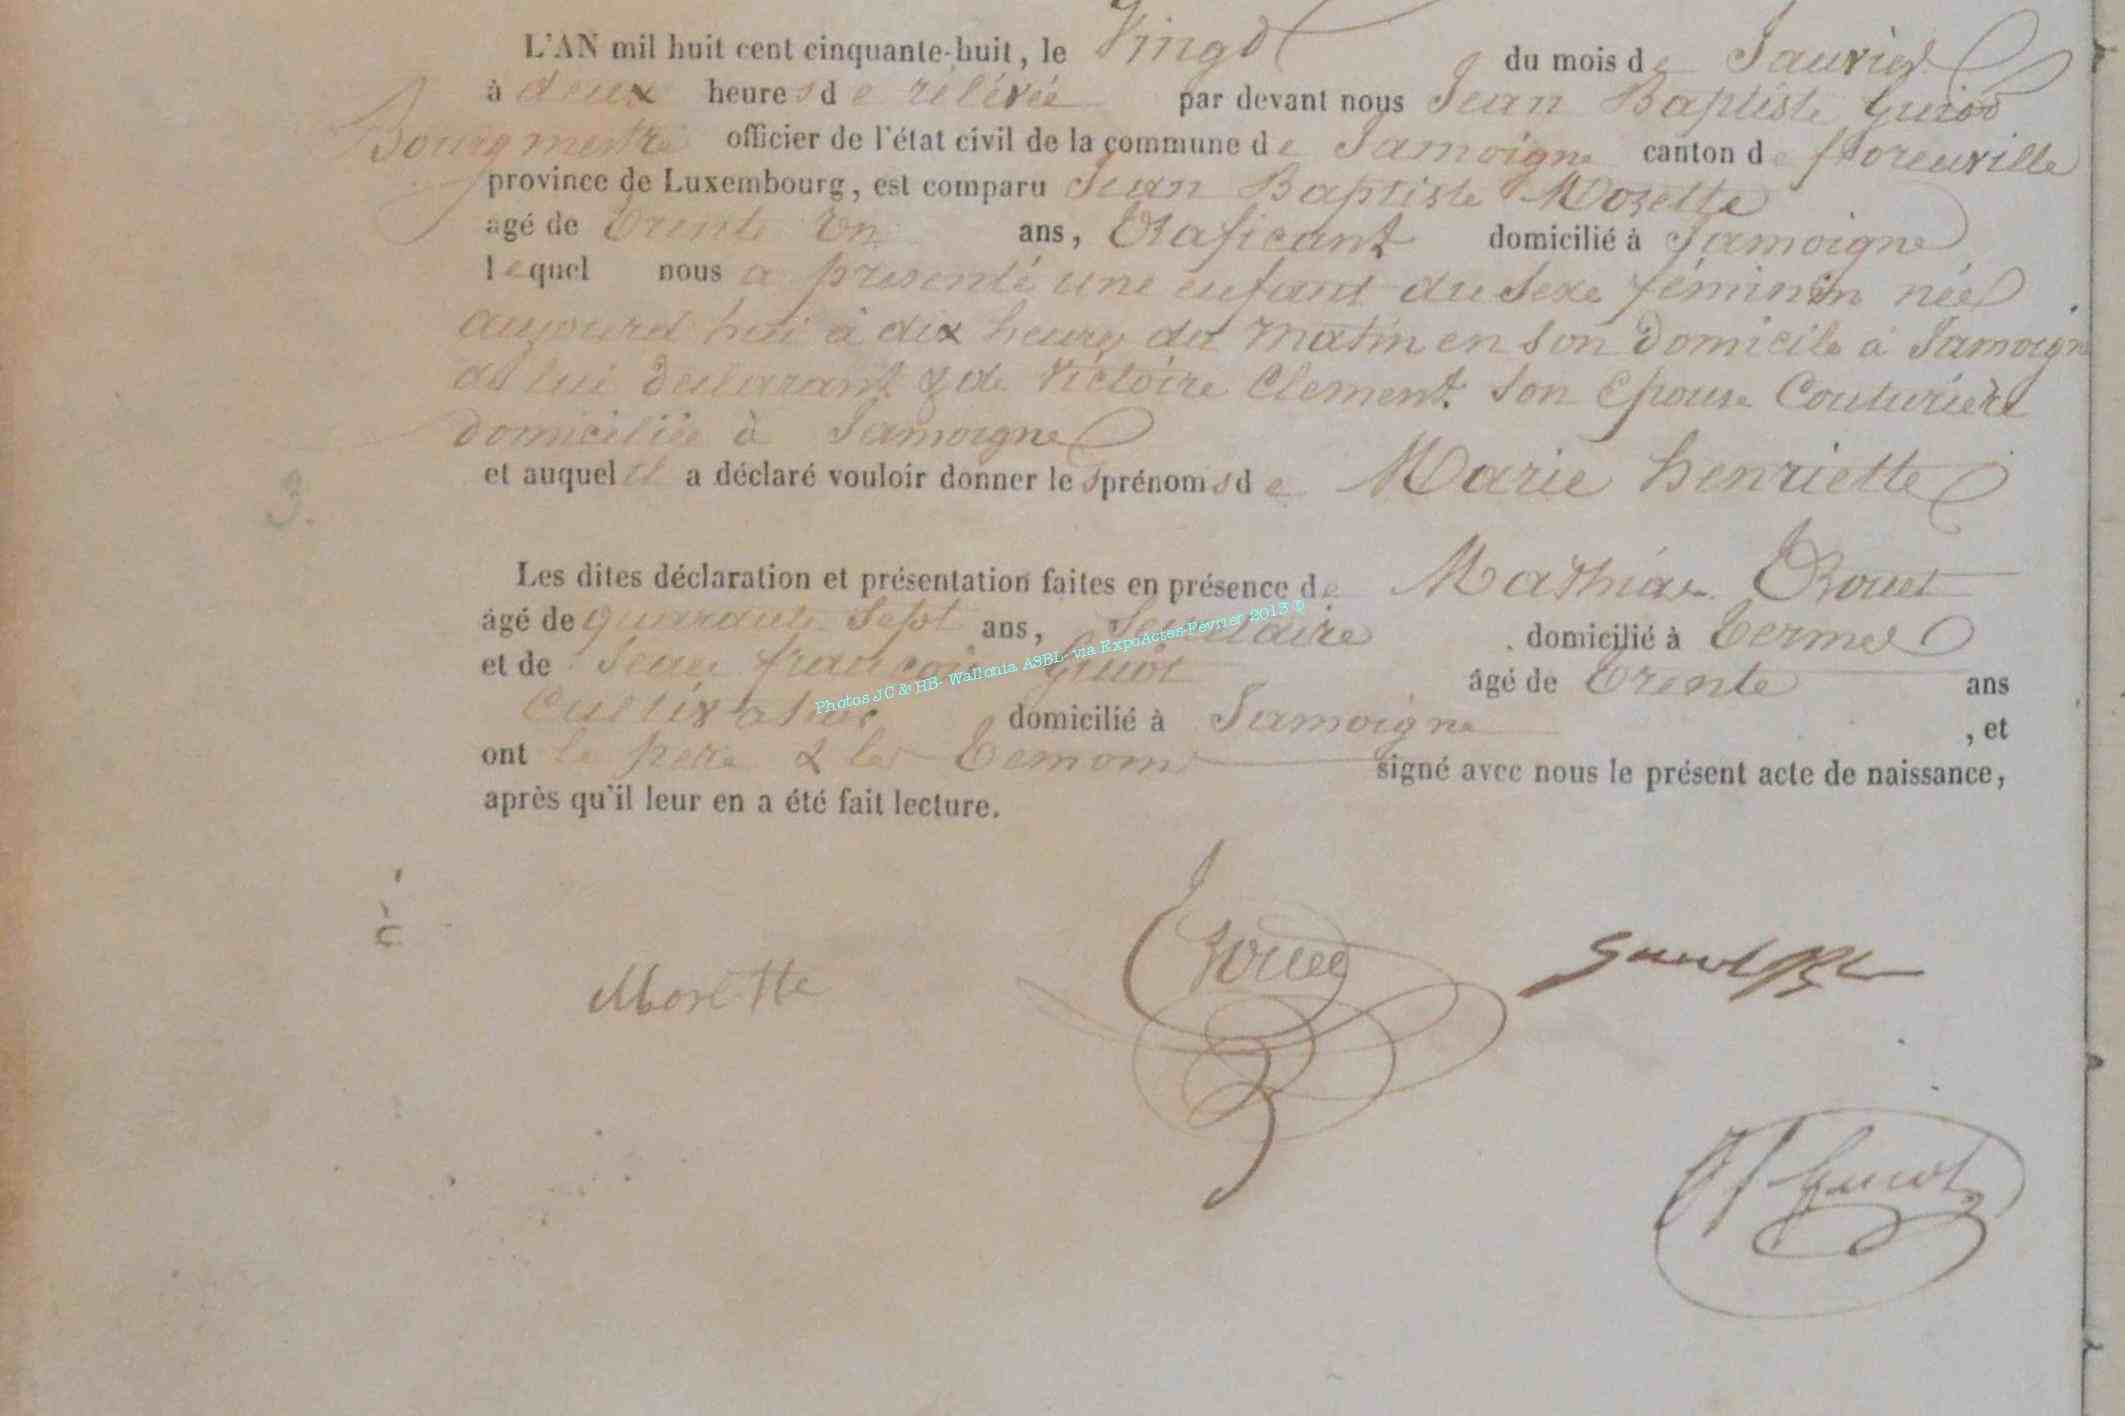 L'AN mil huit cent cinquante-huit, le Vingt du mois de Janvier
à deux heures de rélévée par devant nous Jean Baptiste Guiot
Bourgmestre officier de l'état civil de la commune de Jamoigne canton de florenville
province de Luxembourg, est comparu Jean Baptiste Mozette
agé de trente un ans, Traficant domicilié à Jamoigne
lequel nous a présenté une enfant du sexe féminin née
aujourd'hui à dix heures du matin en son domicile à Jamoigne
de lui declarant & de Victoire Clement son Epouse Couturière
domiciliée à Jamoigne
et auquel il a déclaré vouloir donner les prénoms de Marie henriette
3.
Les dites déclaration et présentation faites en présence de Mathias Trouet
âgé de quarante Sept ans, Secretaire domicilié à termes
et de Jean françois Guiot âgé de trente ans
Cultivateur domicilié à Jamoigne , et
ont le père & les temoins signé avec nous le présent acte de naissance,
après qu'il leur en a été fait lecture.
Photos JC & HB- Wallonia ASBL- via ExpoActes-Fevrier 2013 ©
Morette
Trouet
Guiot
JF Guiot